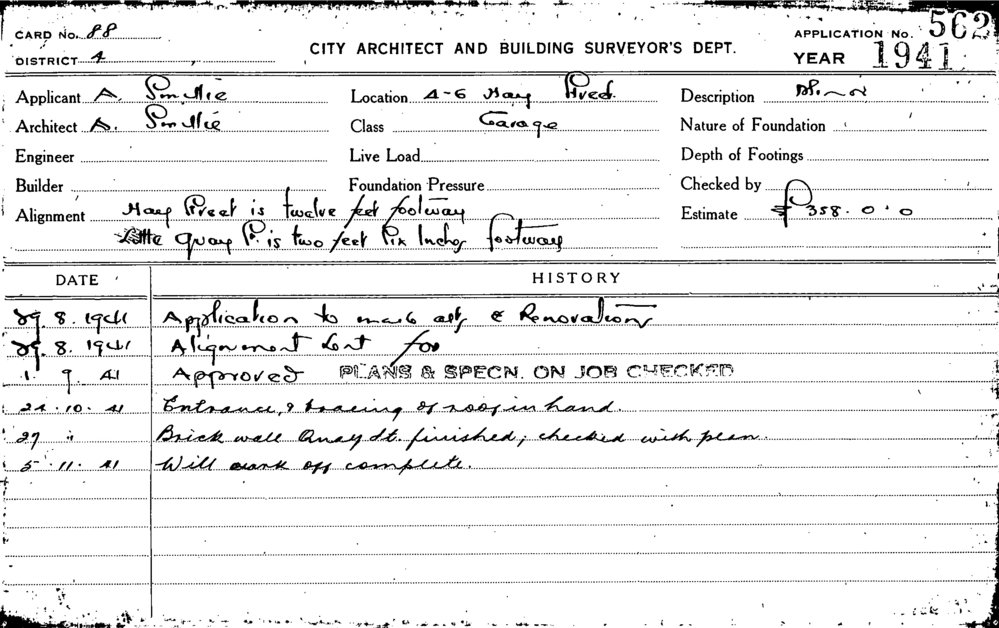 CARD No. 88
APPLICATION No. 562
DISTRICT 4
CITY ARCHITECT AND BUILDING SURVEYOR'S DEPT.
YEAR 1941
Applicant A. Smillie
Location 4-6 Hay Street
Description
Architect A. Smillie
Class Garage
Nature of Foundation
Engineer
Live Load
Depth of Footings
Builder
Foundation Pressure
Checked by
Alignment Hay Street is twelve feet footway
Estimate £ 358.0.0
Little Quay St. is two feet six Inches footway
DATE HISTORY
29.8.1941 Application to make alts & Renovations
29.8.1941 Alignment Sent for
1.9.41 Approved PLANS & SPECN. ON JOB CHECKED
24.10.41 Entrance, & bracing of roof in hand.
27 " Brick wall Quay St. finished; checked with plan.
5.11.41 Will mark off complete.